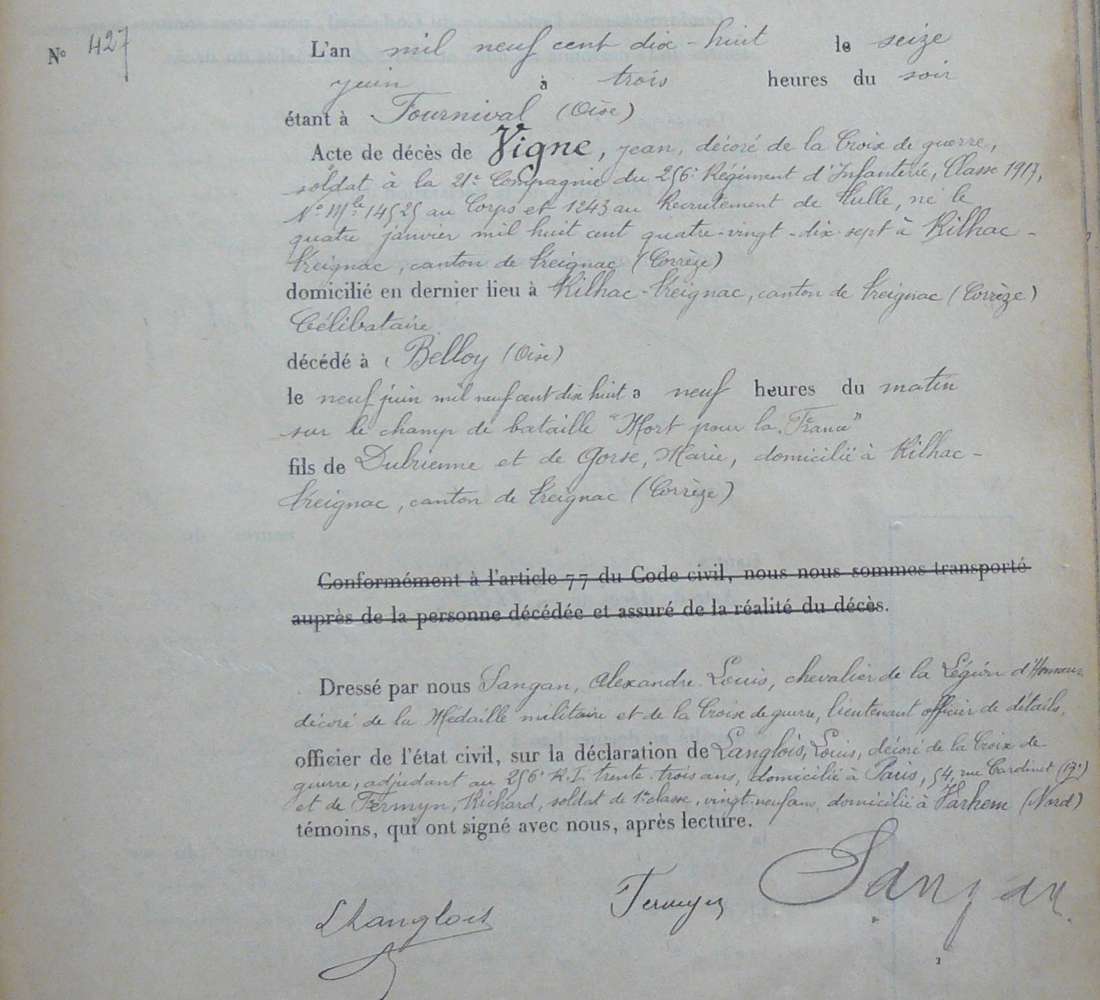 N° 427
L'an mil neuf cent dix-huit le seize
juin à trois heures du soir
étant à Fournival (Oise)
Acte de décès de Vigne, jean, décoré de la Croix de guerre,
soldat à la 21e Compagnie du 256e Régiment d'Infanterie, Classe 1917,
N° Mle 14525 au Corps et 1243 au Recrutement de Tulle, né le
quatre janvier mil huit cent quatre-vingt-dix sept à Rilhac-
Treignac, canton de Treignac (Corrèze)
domicilié en dernier lieu à Rilhac-Treignac, canton de Treignac (Corrèze)
Célibataire
décédé à Belloy (Oise)
le neuf juin mil neuf cent dix huit à neuf heures du matin
sur le champ de bataille "Mort pour la France"
fils de et de Gorse, Marie, domicilié à Rilhac-
Treignac, canton de Treignac (Corrèze)
Conformément à l'article 77 du Code civil, nous nous sommes transporté
auprès de la personne décédée et assuré de la réalité du décès.
Dressé par nous Sangan, Alexandre Louis, chevalier de la Légion d'Honneur,
décoré de la Médaille militaire et de la Croix de guerre, lieutenant officier de détails,
officier de l'état civil, sur la déclaration de Langlois, Louis, décoré de la Croix de
guerre, adjudant au 256e R.I. trente-trois ans, domicilié à Paris, 54 rue Cardinet (17e)
et de Fermyn, Richard, soldat de 1e classe, vingt-neuf ans, domicilié à Warhem (Nord)
témoins, qui ont signé avec nous, après lecture.
LLanglois Fermyn Sangan